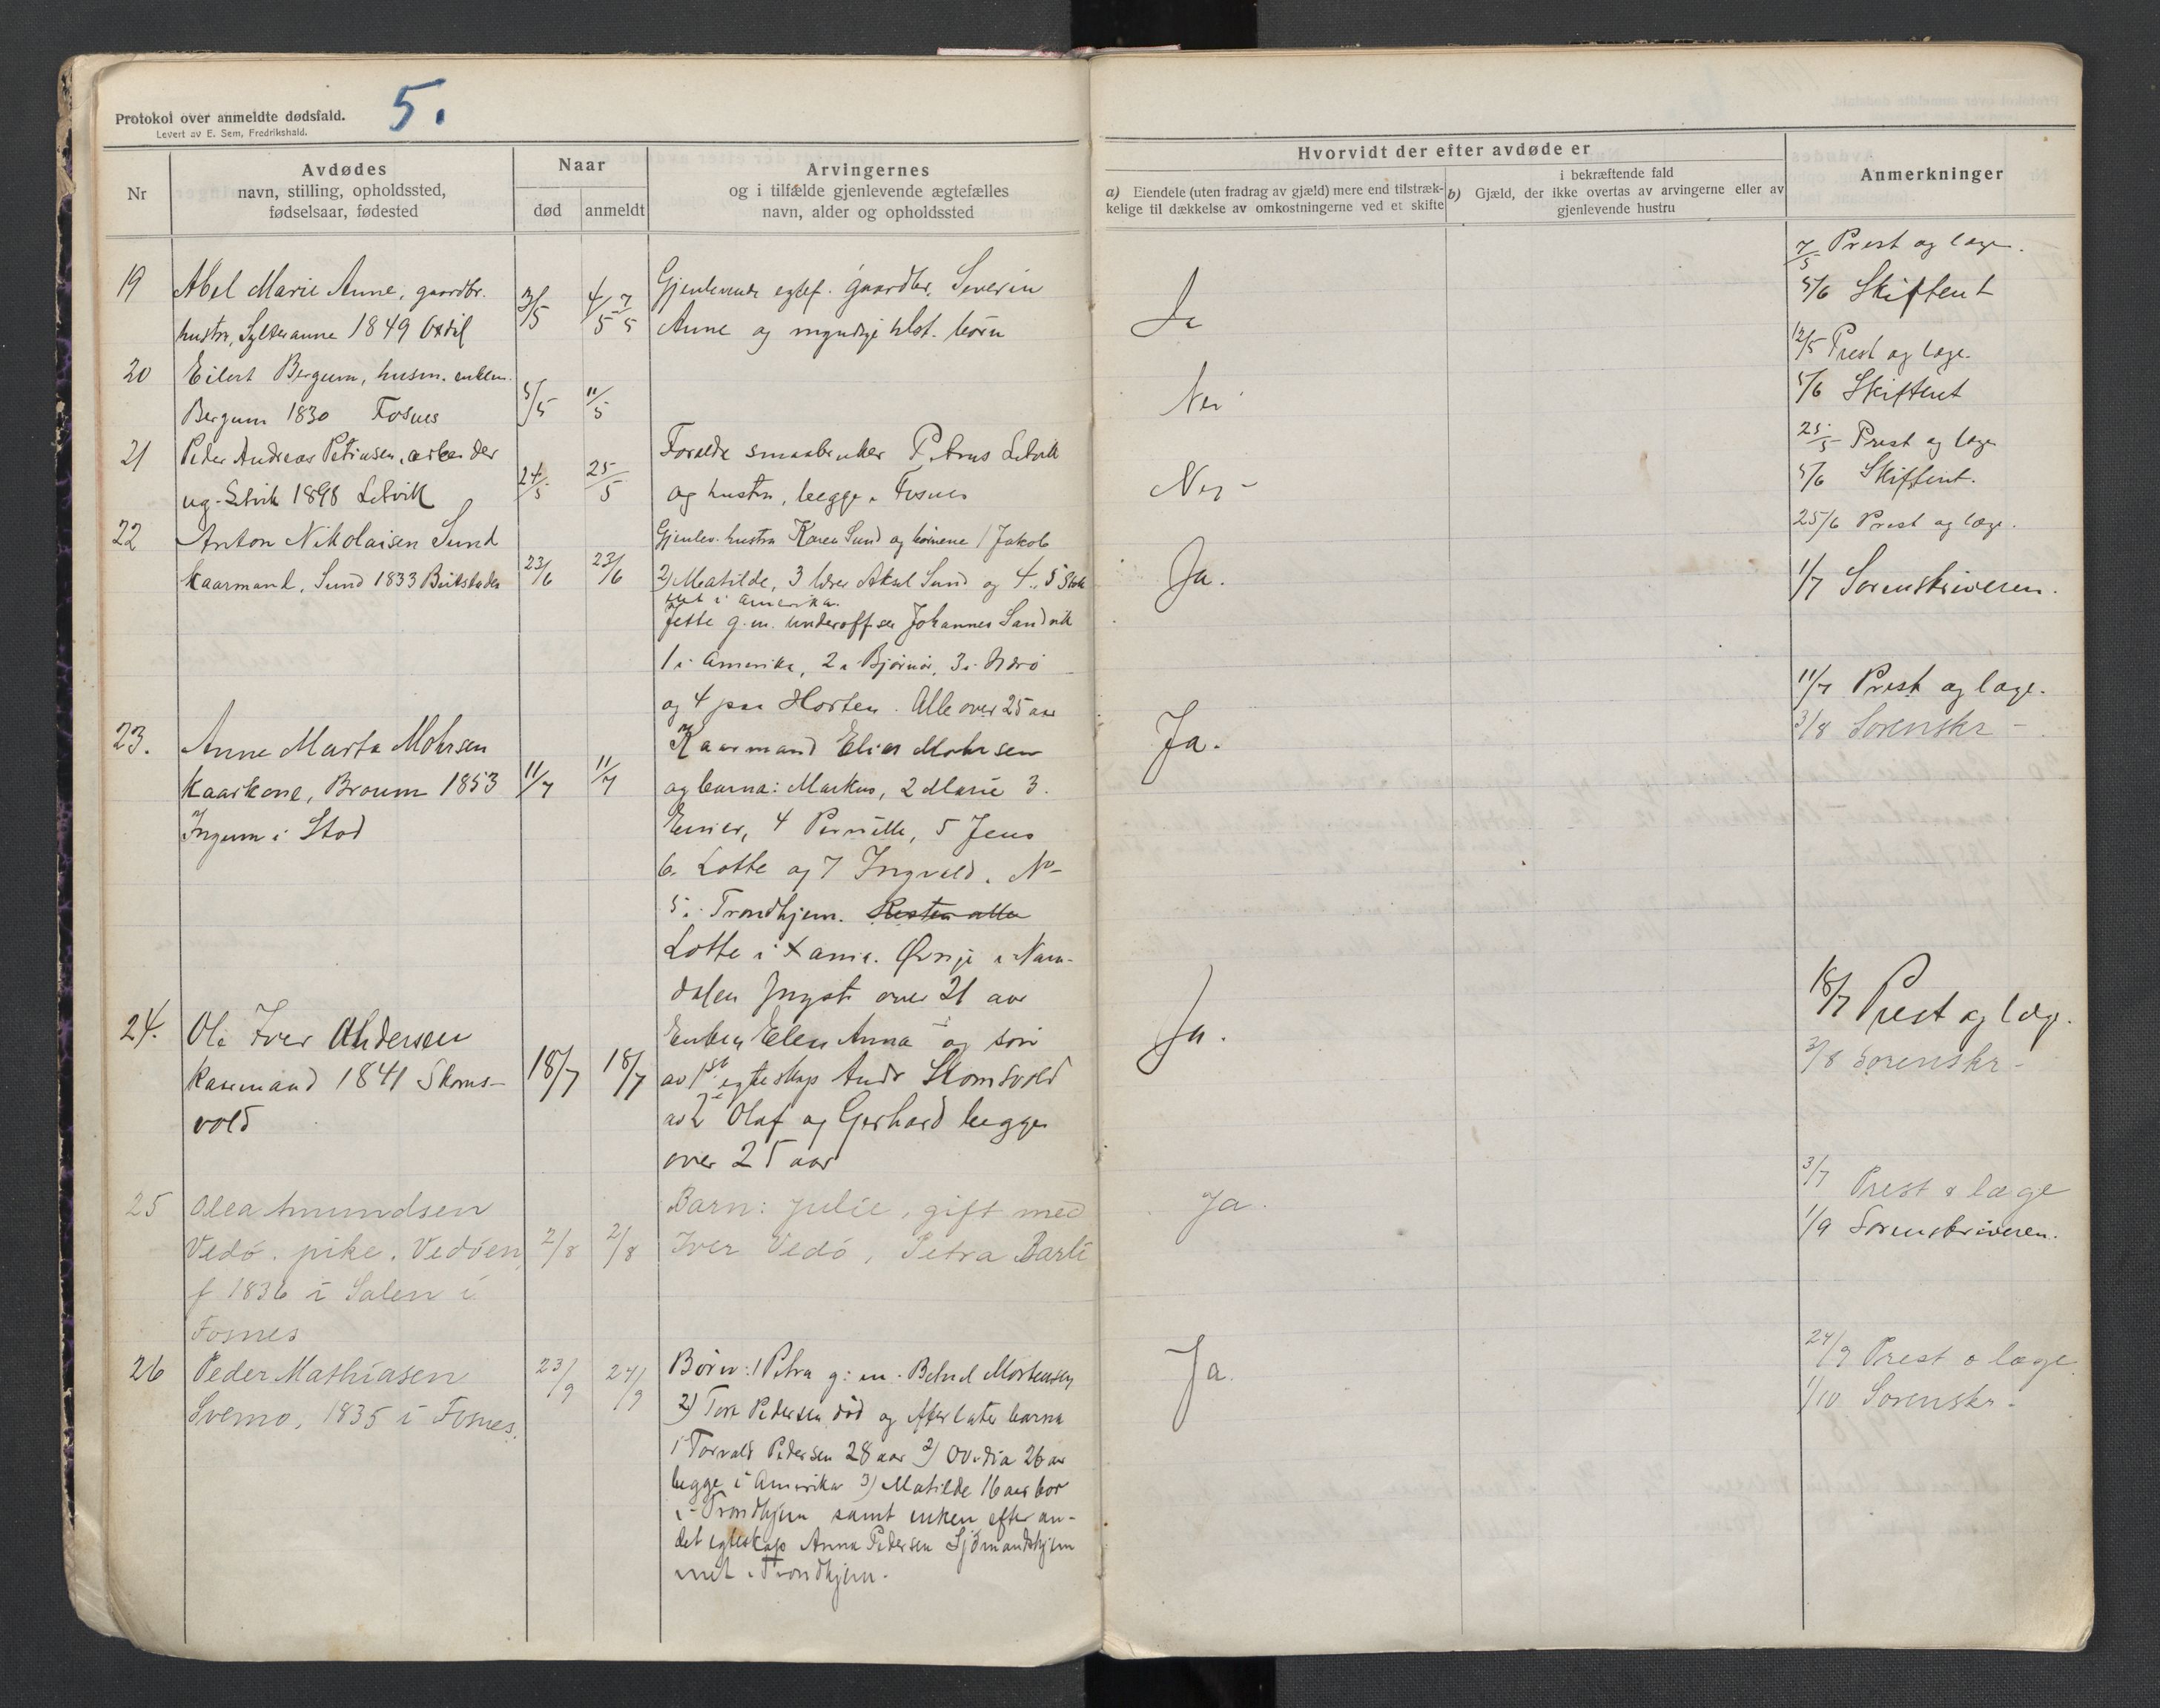 Protokol over anmeldte dødsfald.
Levert av E. Sem, Fredrikshald.
5.
Nr
Avdødes
navn, stilling, opholdssted,
fødselsaar, fødested
Naar
død
anmeldt
Arvingernes
og i tilfælde gjenlevende ægtefælles
navn, alder og opholdssted
Hvorvidt der efter avdøde er
a) Eiendele (uten fradrag av gjæld) mere end tilstræk-
kelige til dækkelse av omkostningerne ved et skifte
i bekræftende fald
b) Gjæld, der ikke overtas av arvingerne eller av
gjenlevende hustru
Anmerkninger
19
Abel Marie Anne, gaardbr.
hustru, 1849
3/5
4/5 7/5
Gjenlevende egtef. gaardbr. Severin
Anne og myndige børn
Ja
7/5 Prest og læge.
5/6 Skiftent
20
Eilert Bergum, husm. enkem.
Bergum 1830 Fosnes
5/5
11/5
Nei
12/5 Prest og læge.
5/6 Skiftent
21
Peder Andreas Petriusen, arbeider
ug. 1898 Letvik
24/5
25/5
Forældre smaabruker Petrus Letvik
og hustru, begge i Fosnes
Nei -
25/5 Prest og læge
5/6 Skiftent.
22
Anton Nikolaisen Sund
Kaarmand, Sund 1833 Beitstaden
23/6
23/6
Gjenlev. hustru Karen Sund og børnene 1 Jakob
2) Matilde, 3 lærer Aksel Sund og 4..
i Amerika.
g. m. underofficer Johannes Sandvik
1 i Amerika, 2 i Bjørnør, 3 i Nærø
og 4 paa Horten. Alle over 25 aar
Ja.
25/6 Prest og læge.
1/7 Sorenskriveren.
23.
Anne Marta Mohrsen
Kaarkone, Broum 1853
Ingum i Stod
11/7
11/7
Kaarmand Elias Mohrsen
og barna: Markus, 2 Marie 3.
4 Pernille, 5 Jens
6. Lotte og 7 Ingvald. No
5 i Trondhjem. Resten alle
Lotte i Xania. Øvrige i Nam-
dalen Yngste over 21 aar
Ja.
11/7 Prest og læge.
3/8 Sorenskr -
24.
Ole Iver Andersen
Kaarmand 1841 Skoms-
vold
18/7
18/7
Enken Elen Anna og søn
av 1st egteskap Andr Skomsvold
av 2 Olaf og Gerhard begge
over 25 aar
Ja.
18/7 Prest og læge.
3/8 Sorenskr -
25
Olea Amundsen
Vedø. pike. Vedøen,
f 1836 i Salen i
Fosnes
2/8
2/8
Barn: Julie, gift med
Iver Vedø, Petra Barli
Ja.
3/7 Prest & læge
1/9 Sorenskriveren.
26
Peder Mathiasen
Svemo, 1835 i Fosnes.
23/9
24/9
Børn: 1 Petra g: m. Mortensen
2) Tore Pedersen død og efterlater barna
1 Torvald Pedersen 28 aar 2) Ovidia 26 aar
begge i Amerika 3) Matilde 16 aar bor
i Trondhjem samt enken efter an-
det egteskap Anna Pedersen Sjømandshjem
met i Trondhjem.
Ja.
24/9 Prest o læge
1/10 Sorenskr -